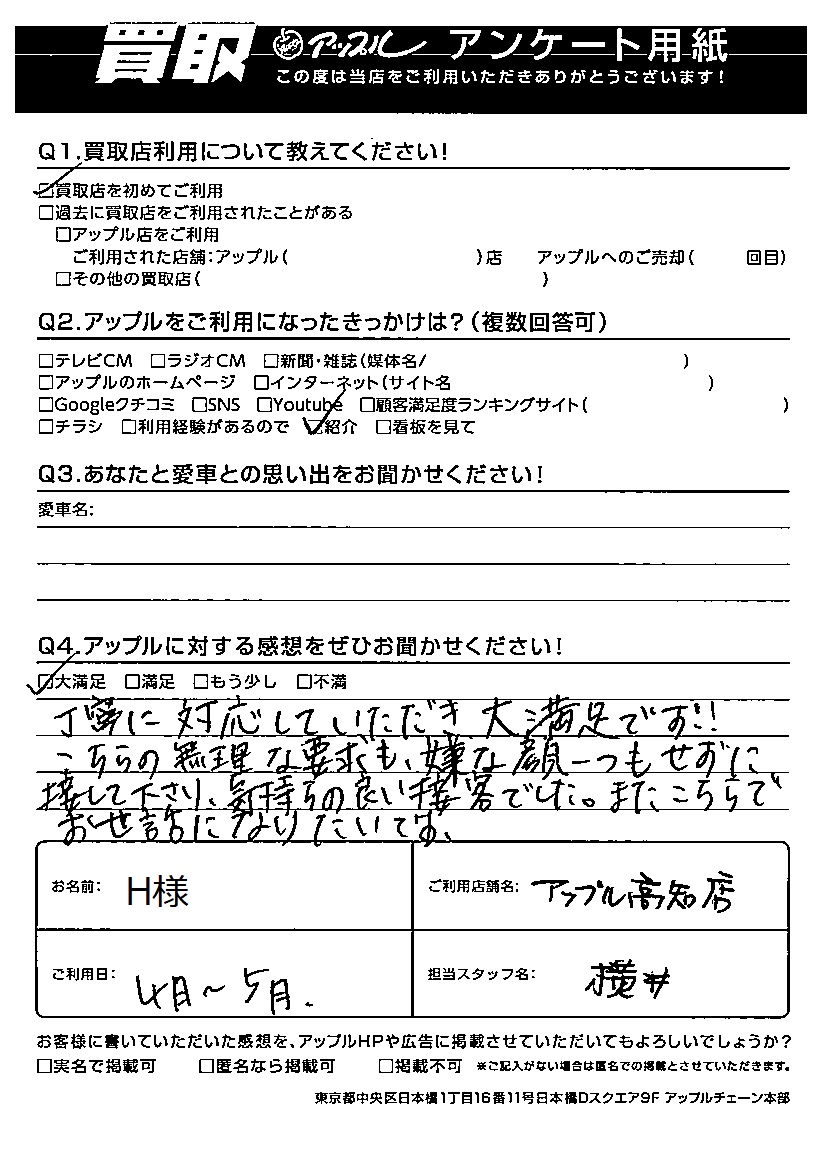 買取 アップル アンケート用紙
この度は当店をご利用いただきありがとうございます!
Q1.買取店利用について教えてください!
☑買取店を初めてご利用
□過去に買取店をご利用されたことがある
□アップル店をご利用
ご利用された店舗:アップル( )店 アップルへのご売却( 回目)
□その他の買取店( )
Q2.アップルをご利用になったきっかけは?(複数回答可)
□テレビCM □ラジオCM □新聞・雑誌(媒体名/ )
□アップルのホームページ □インターネット(サイト名 )
□Googleクチコミ □SNS □Youtube □顧客満足度ランキングサイト( )
□チラシ □利用経験があるので ☑紹介 □看板を見て
Q3.あなたと愛車との思い出をお聞かせください!
愛車名:
Q4.アップルに対する感想をぜひお聞かせください!
☑大満足 □満足 □もう少し □不満
丁寧に対応していただき大満足です!!
こちらの無理な要求も、嫌な顔一つもせずに
接して下さり、気持ちの良い接客でした。またこちらで
お世話になりたいです。
お名前: H様
ご利用店舗名: アップル高知店
ご利用日: 4月～5月.
担当スタッフ名: 横井
お客様に書いていただいた感想を、アップルHPや広告に掲載させていただいてもよろしいでしょうか?
□実名で掲載可 □匿名なら掲載可 □掲載不可 ※ご記入がない場合は匿名での掲載とさせていただきます。
東京都中央区日本橋1丁目16番11号日本橋Dスクエア9F アップルチェーン本部